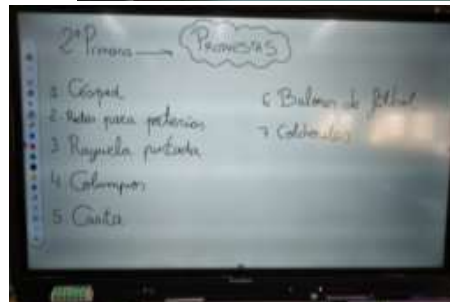 2º Primaria → PROPUESTAS
1 Césped
2. Redes para porterías
3 Rayuela pintada
4. Columpios
5. Casita
6 Balones de fútbol
7 Colchonetas